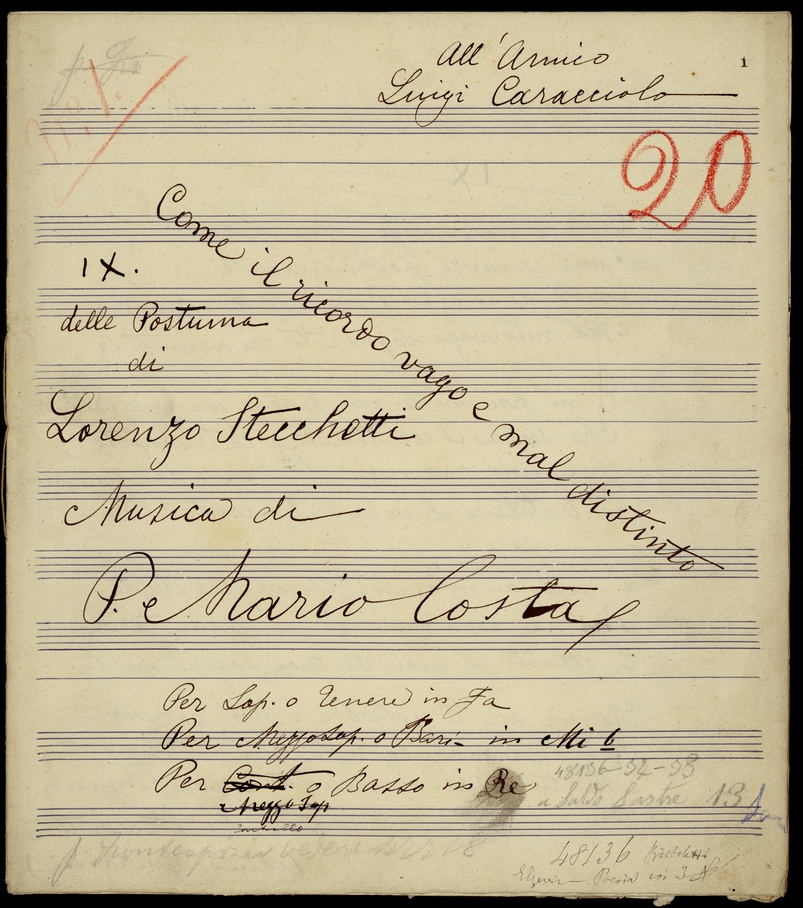 All'Amico
Luigi Caracciolo
1
No. 1.
20
Come il ricordo vago e mal distinto
IX.
delle Postuma
di
Lorenzo Stecchetti
Musica di
P. Mario Costa
Per Sop. o Tenore in Fa
Per MezzoSop. o Bari- in Mi b
Per Cont. o Basso in Re
Mezzo Sop
48136-37-38
a Saldo 13
48136
Elzevir - Poesia